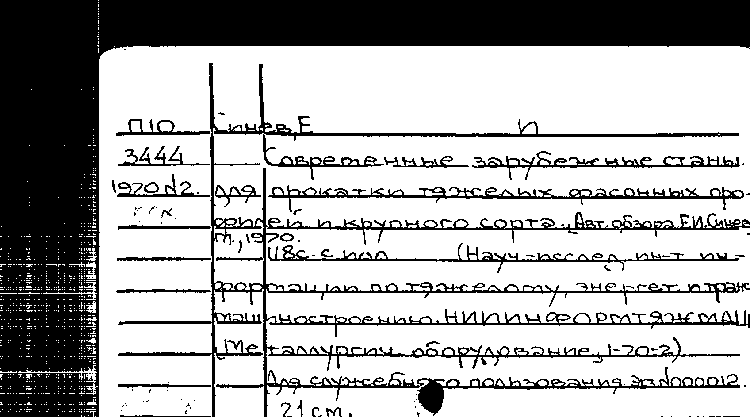 П10 Синев, Е И
3444 Современные зарубежные станы
1970 № 2. для прокатки тяжелых фасонных про-
филей и крупного сорта. [Авт. обзора Е.И. Синев
М., 1970.
118с. с ил. (Науч.-исслед. ин-т ин-
формации по тяжелому, энергет. и тран
машиностроению. НИИИНФОРМТЯЖМАШ
(Металлургич. оборудование, 1-70-2)
Для служебного пользования экз№000012.
21 cm.